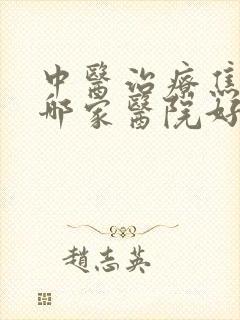 中醫治療焦
哪家醫院好
趙志英